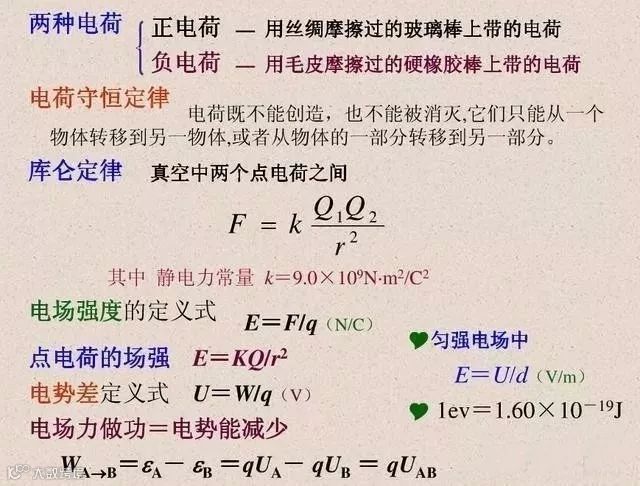 两种电荷 { 正电荷 — 用丝绸摩擦过的玻璃棒上带的电荷
负电荷 — 用毛皮摩擦过的硬橡胶棒上带的电荷
电荷守恒定律 电荷既不能创造，也不能被消灭,它们只能从一个
物体转移到另一物体,或者从物体的一部分转移到另一部分。
库仑定律 真空中两个点电荷之间
F = k Q₁Q₂ / r²
其中 静电力常量 k＝9.0×10⁹N·m²/C²
电场强度的定义式 E＝F/q（N/C）
点电荷的场强 E＝KQ/r²
电势差定义式 U＝W/q（V）
电场力做功＝电势能减少
W_A→B＝ε_A－ ε_B＝qU_A－ qU_B＝qU_AB
匀强电场中
E＝U/d（V/m）
1ev＝1.60×10⁻¹⁹J